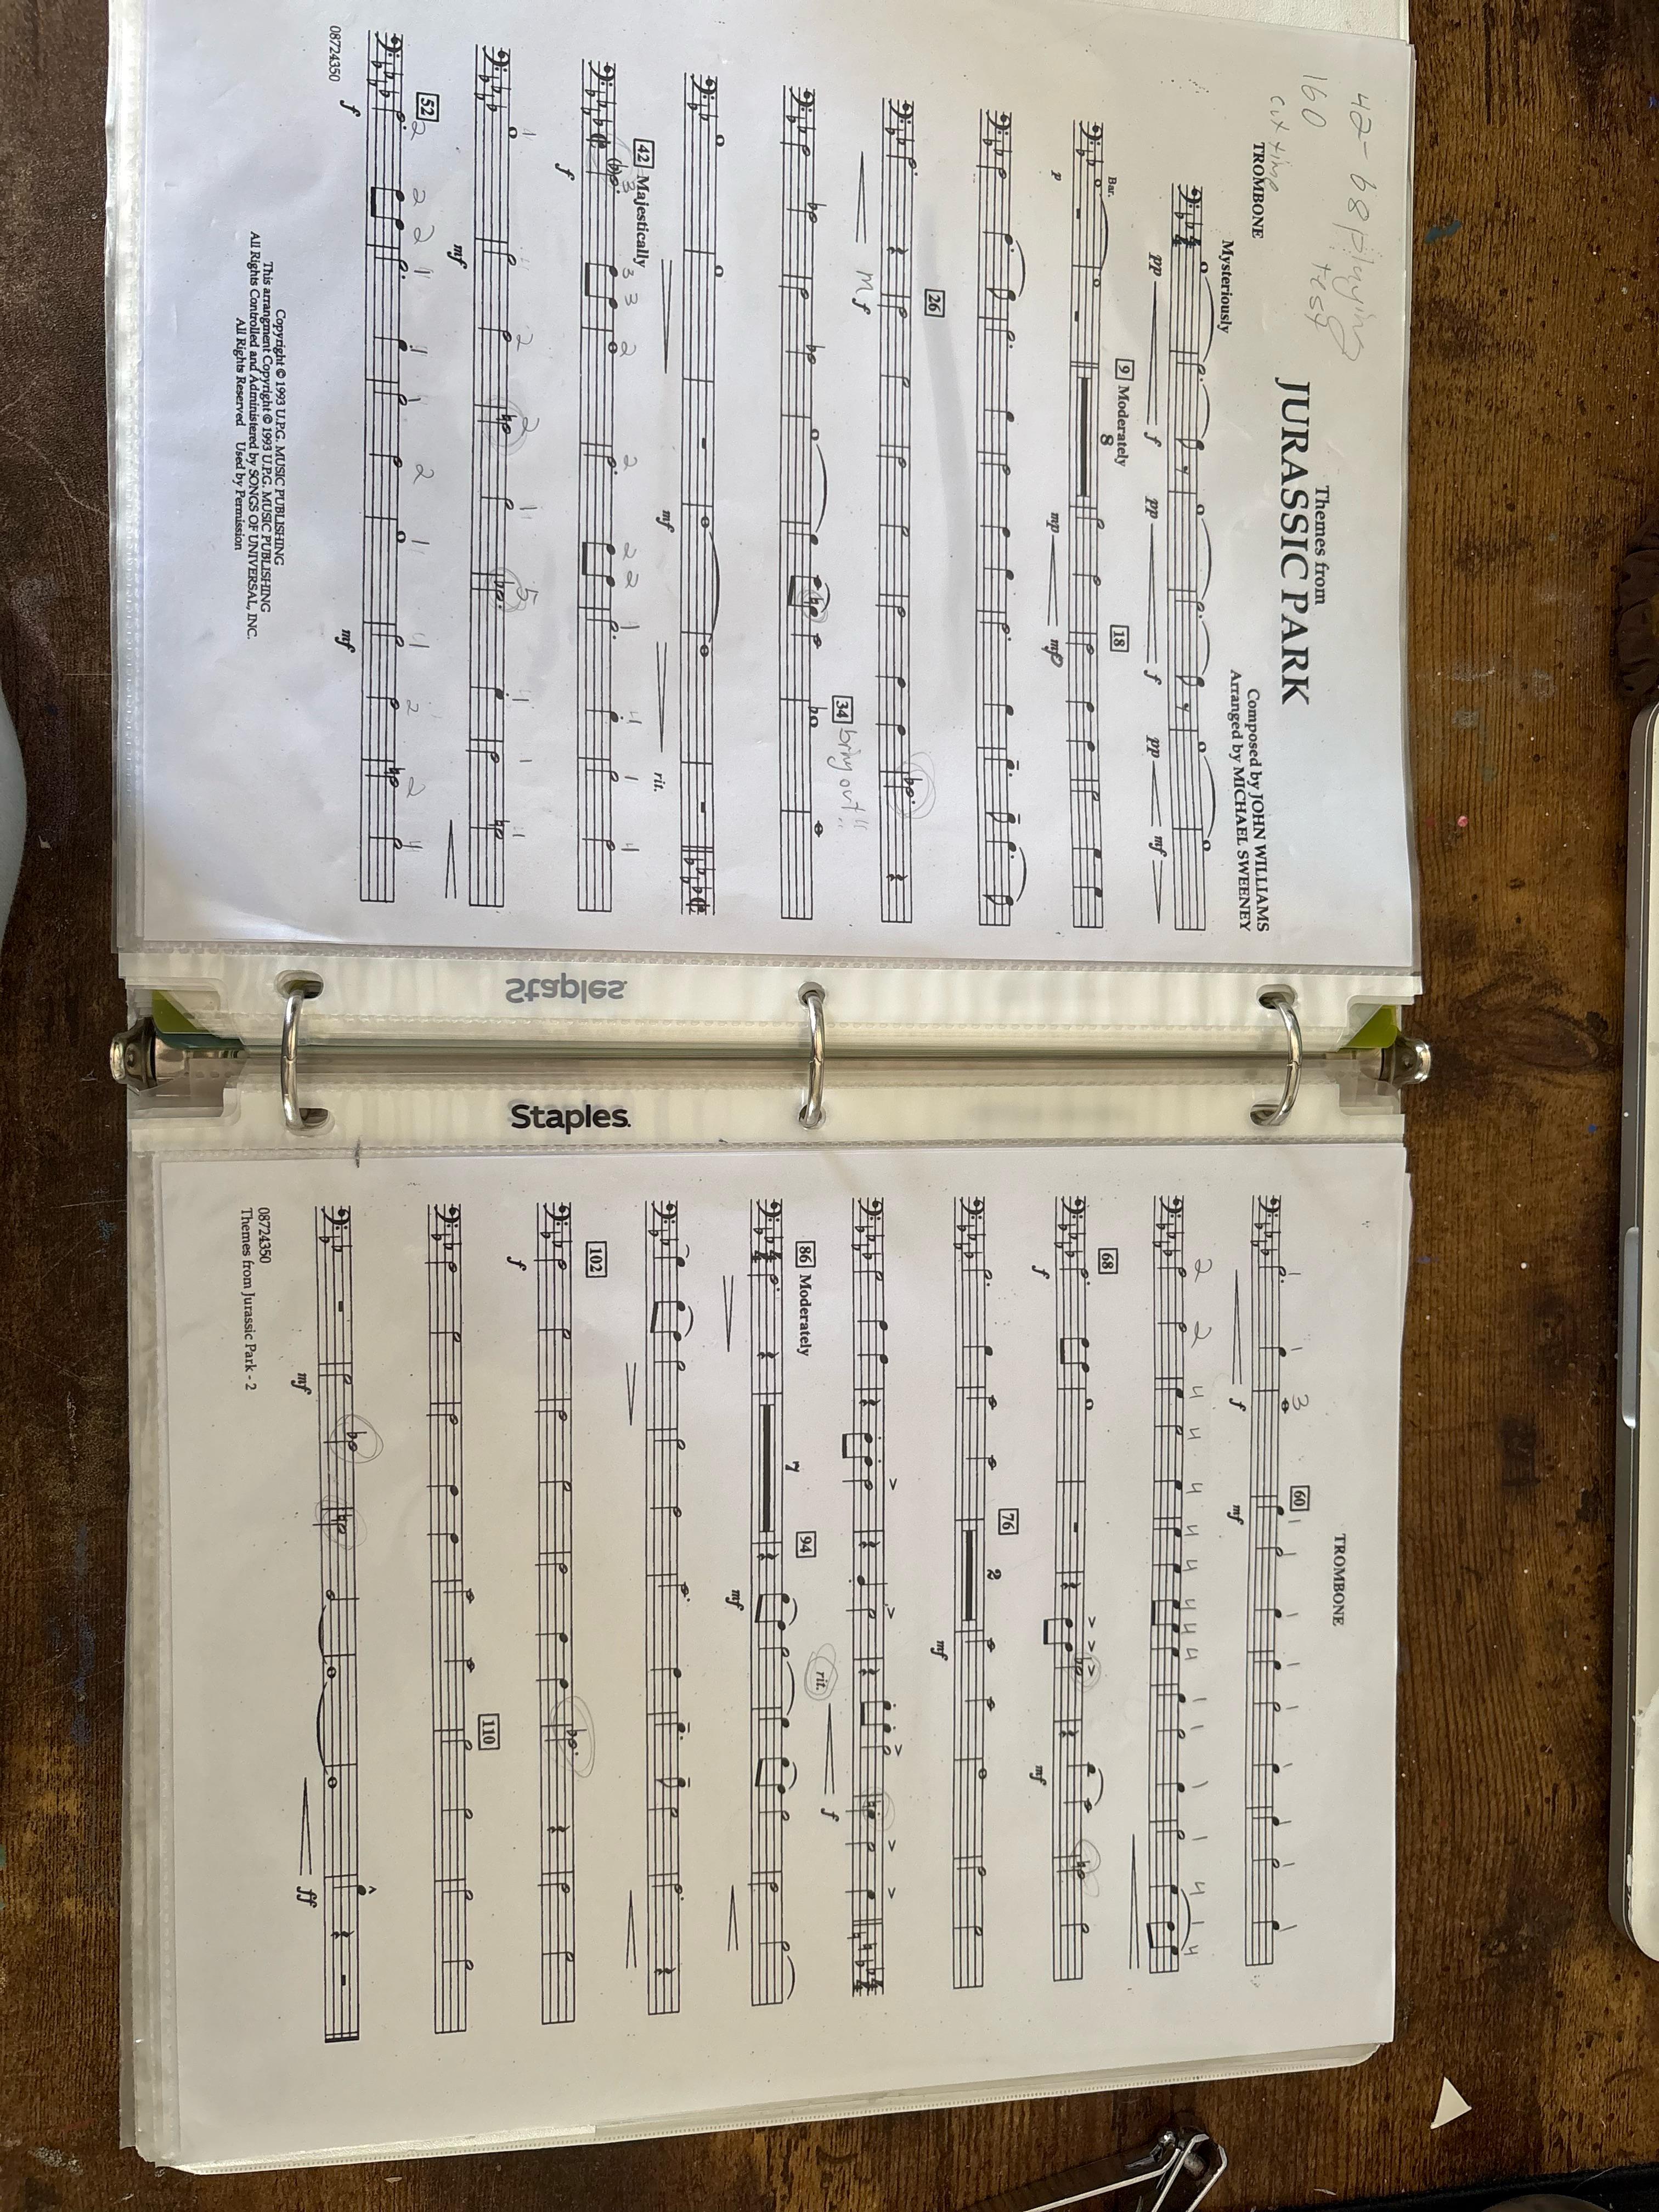 42-68 playing test
160
cut time
TROMBONE
Themes from
JURASSIC PARK
Composed by JOHN WILLIAMS
Arranged by MICHAEL SWEENEY
Mysteriously
pp f pp f pp mf
Bar.
9 Moderately
8
18
p mp mp
26
mf
34 bring out!!
mf rit.
42 Majestically
3 3 3 2 2 2 2 1 4 1 4
f
1 1 2 2 1 5 4 1 1
mf
52
2 2 2 1 1 1 2 1 4 2 2 4
f mf
08724350
Copyright © 1993 U.P.G. MUSIC PUBLISHING
This arrangment Copyright © 1993 U.P.G. MUSIC PUBLISHING
All Rights Controlled and Administered by SONGS OF UNIVERSAL, INC.
All Rights Reserved Used by Permission
Staples.
Staples.
TROMBONE
60
1 1 3 1 1 1 1 1 1 1 1
f mf
2 2 4 4 4 4 4 4 4 4 1 1 1 1 4 1 4
68
f mf
76
2
mf
rit. f
86 Moderately
7
94
mf
102
f
110
mf ff
08724350
Themes from Jurassic Park - 2